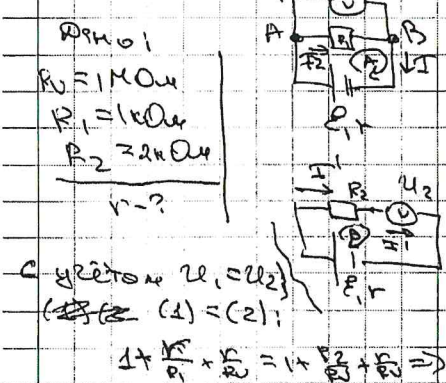 Дано:
R_V = 1 МОм
R_1 = 1 кОм
R_2 = 2 кОм
r - ?
V
A R_1 B
I_2 A_2 ↓I
ℰ, r
I' R_2 U_2
V
B I'
ℰ, r
С учётом U_1 = U_2 }
(1) = (2):
1 + r/R_1 + r/R_V = 1 + R_2/R_V + r/R_V =>